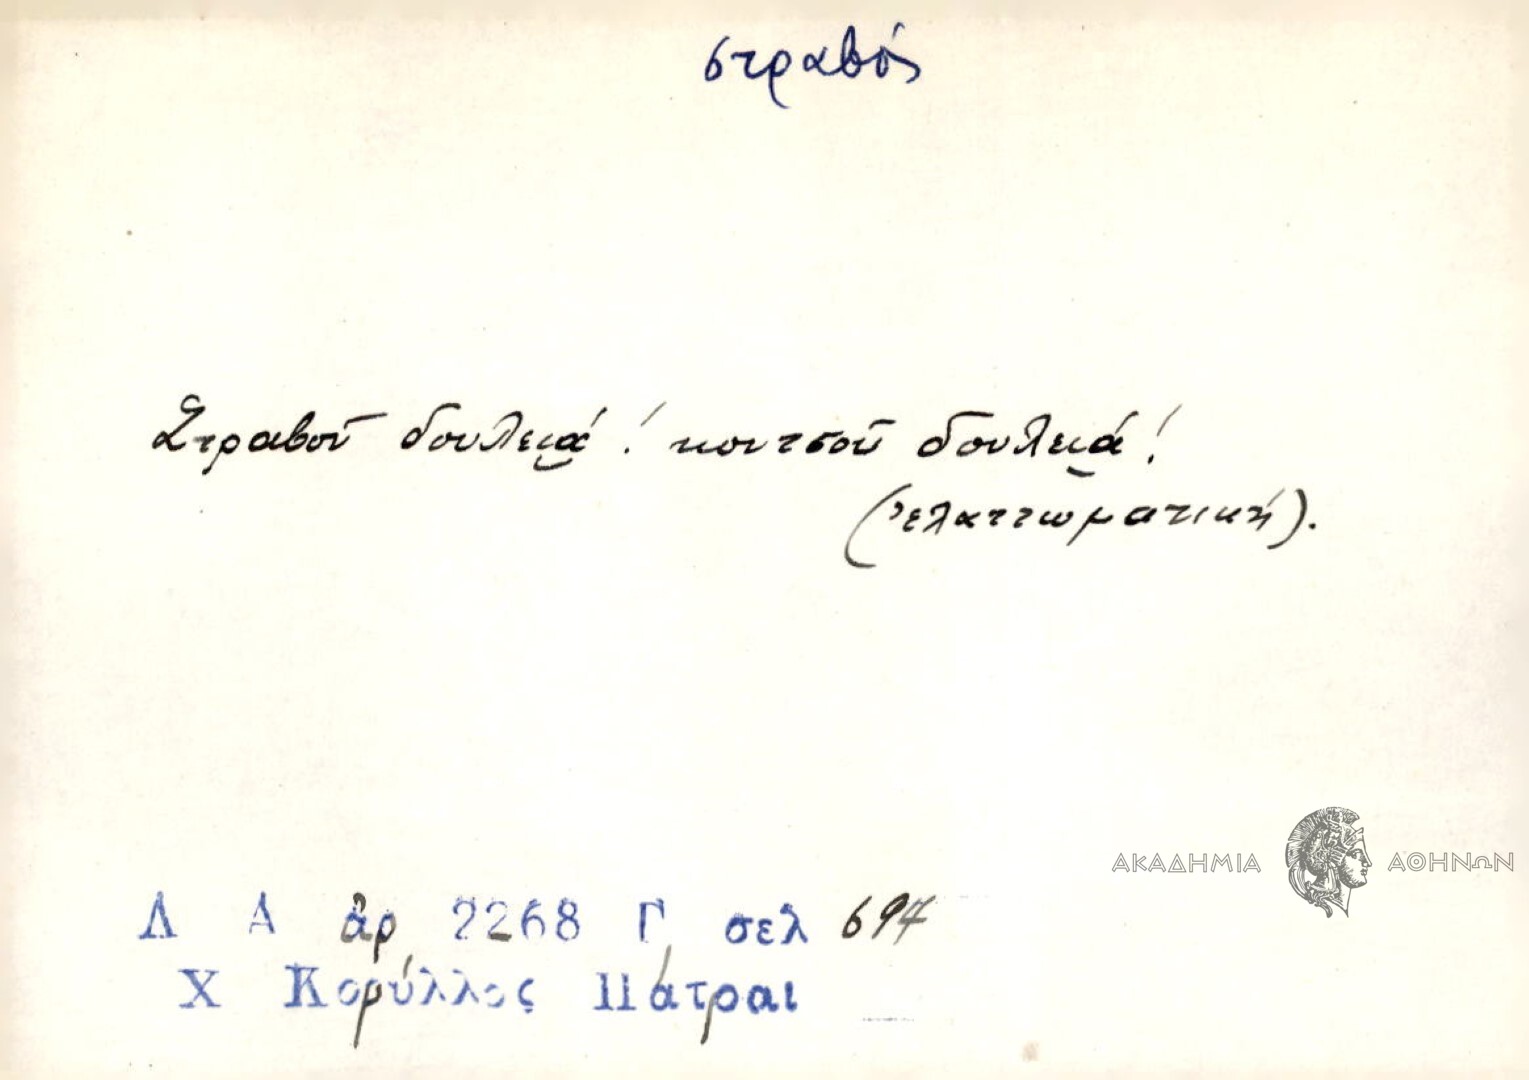 στραβός
Στραβοῦ δουλειά! κουτσοῦ δουλειά!
(ἐλαττωματική).
ΑΚΑΔΗΜΙΑ ΑΘΗΝΩΝ
Λ Α ἀρ 2268 Γ σελ 697
Χ Κορύλλος Πάτραι